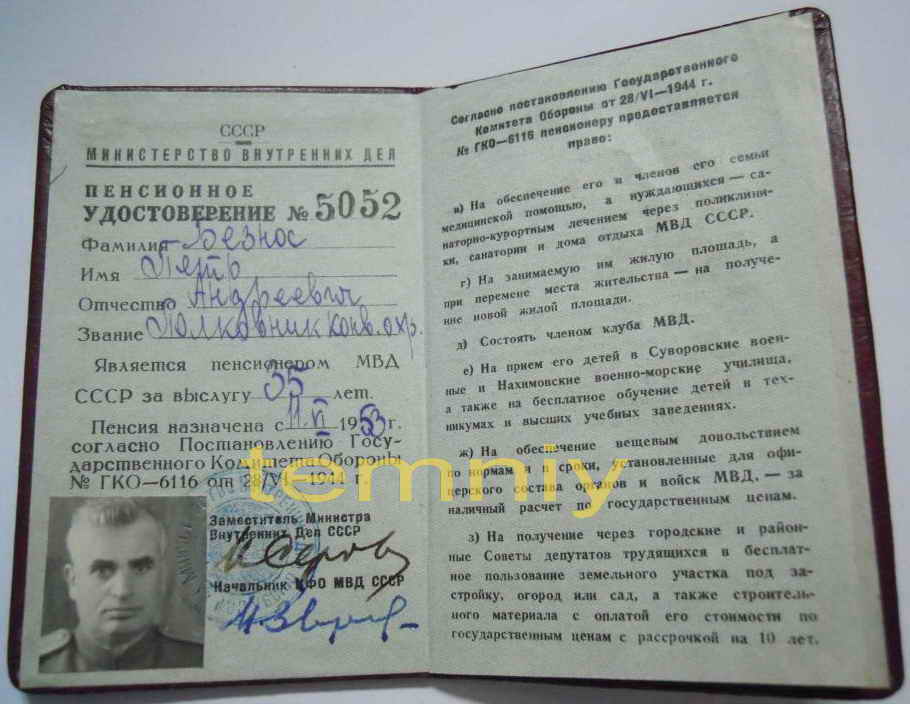 СССР
МИНИСТЕРСТВО ВНУТРЕННИХ ДЕЛ
ПЕНСИОННОЕ
УДОСТОВЕРЕНИЕ № 5052
Фамилия Безнос
Имя Петр
Отчество Андреевич
Звание Полковник конв. охр.
Является пенсионером МВД
СССР за выслугу 35 лет.
Пенсия назначена с 11.VI 1953 г.
согласно Постановлению Госу-
дарственного Комитета Обороны
№ ГКО—6116 от 28/VI—1944 г.
Заместитель Министра
Внутренних Дел СССР
И Серов
Начальник ЦФО МВД СССР
Согласно постановлению Государственного
Комитета Обороны от 28/VI—1944 г.
№ ГКО—6116 пенсионеру предоставляется
право:
в) На обеспечение его и членов его семьи
медицинской помощью, а нуждающихся — са-
наторно-курортным лечением через поликлини-
ки, санатории и дома отдыха МВД СССР.
г) На занимаемую им жилую площадь, а
при перемене места жительства — на получе-
ние новой жилой площади.
д) Состоять членом клуба МВД.
е) На прием его детей в Суворовские воен-
ные и Нахимовские военно-морские училища,
а также на бесплатное обучение детей в тех-
никумах и высших учебных заведениях.
ж) На обеспечение вещевым довольствием
по нормам и в сроки, установленные для офи-
церского состава органов и войск МВД, — за
наличный расчет по государственным ценам.
з) На получение через городские и район-
ные Советы депутатов трудящихся в бесплат-
ное пользование земельного участка под за-
стройку, огород или сад, а также строитель-
ного материала с оплатой его стоимости по
государственным ценам с рассрочкой на 10 лет.
temniy